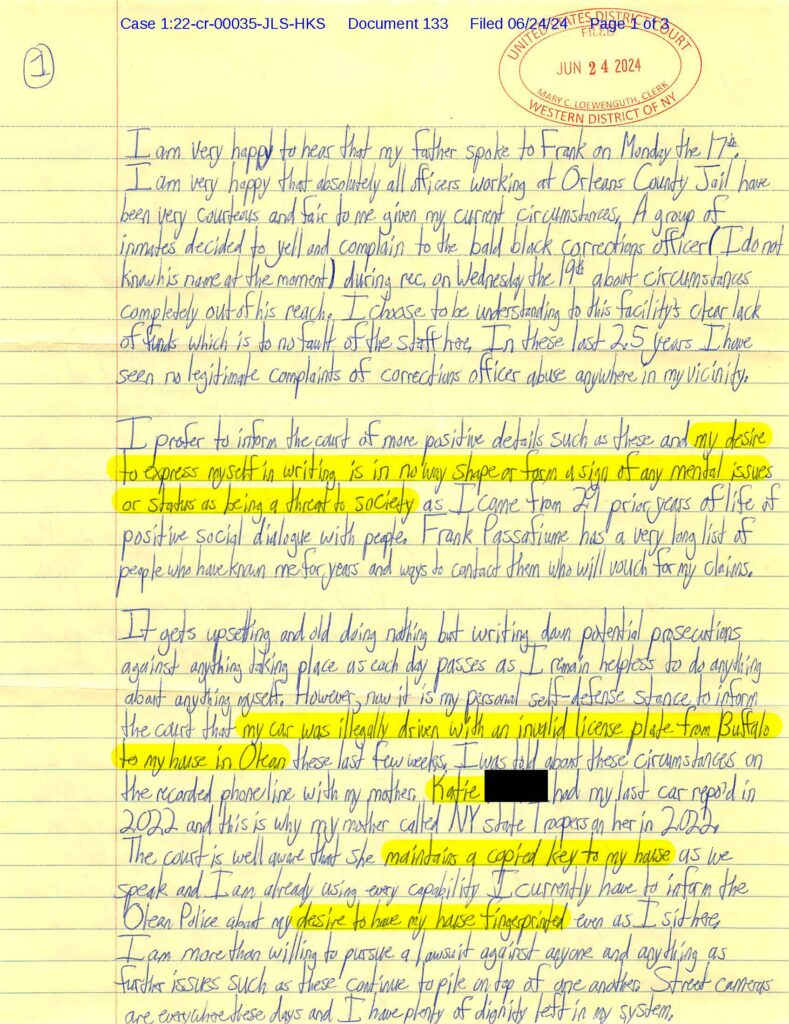 Case 1:22-cr-00035-JLS-HKS Document 133 Filed 06/24/24 Page 1 of 3
UNITED STATES DISTRICT COURT
FILED
JUN 24 2024
MARY C. LOEWENGUTH, CLERK
WESTERN DISTRICT OF NY
1
I am very happy to hear that my father spoke to Frank on Monday the 17th.
I am very happy that absolutely all officers working at Orleans County Jail have
been very courteous and fair to me given my current circumstances. A group of
inmates decided to yell and complain to the bald black corrections officer (I do not
know his name at the moment) during rec. on Wednesday the 19th about circumstances
completely out of his reach. I choose to be understanding to this facility's clear lack
of funds which is to no fault of the staff here. In these last 2.5 years I have
seen no legitimate complaints of corrections officer abuse anywhere in my vicinity.
I prefer to inform the court of more positive details such as these and my desire
to express myself in writing is in no way shape or form a sign of any mental issues
or status as being a threat to society as I came from 29 prior years of life of
positive social dialogue with people. Frank Passafiume has a very long list of
people who have known me for years and ways to contact them who will vouch for my claims.
It gets upsetting and old doing nothing but writing down potential prosecutions
against anything taking place as each day passes as I remain helpless to do anything
about anything myself. However, now it is my personal self-defense stance to inform
the court that my car was illegally driven with an invalid license plate from Buffalo
to my house in Olean these last few weeks. I was told about these circumstances on
the recorded phone line with my mother. Katie had my last car repo'd in
2022 and this is why my mother called NY state Troopers on her in 2022.
The court is well aware that she maintains a copied key to my house as we
speak and I am already using every capability I currently have to inform the
Olean Police about my desire to have my house fingerprinted even as I sit here.
I am more than willing to pursue a lawsuit against anyone and anything as
further issues such as these continue to pile on top of one another. Street cameras
are everywhere these days and I have plenty of dignity left in my system.